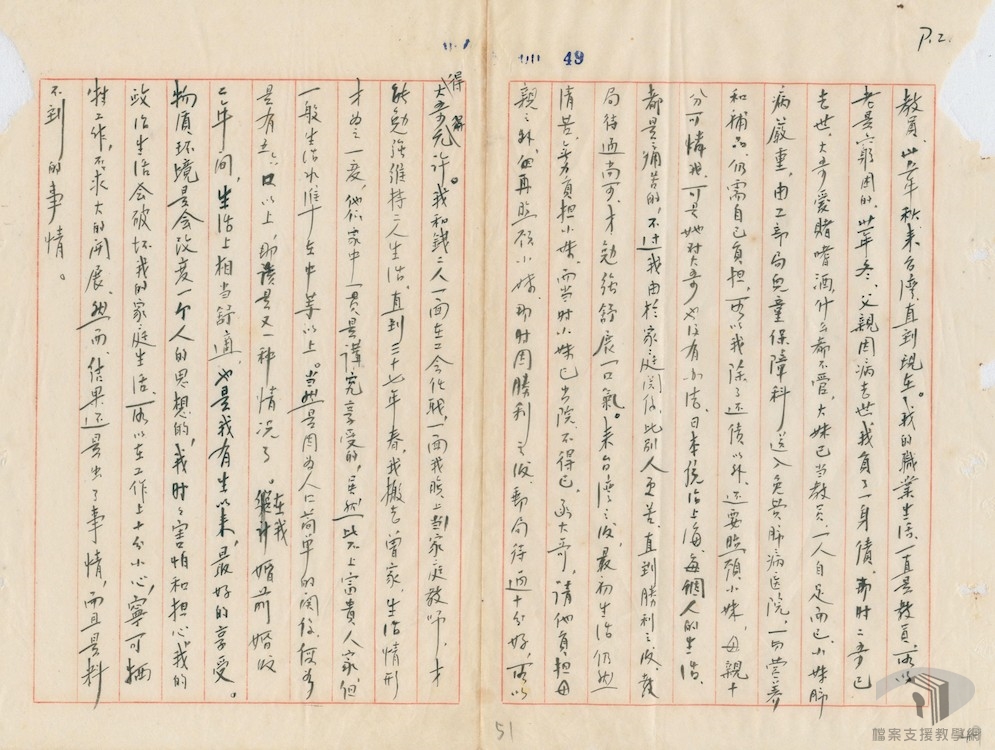 P.2.
49
教員、卅五年秋來台灣直到現在。我的職業生活、一直是教員、所以
老是窮困的、卅年冬、父親因病去世、我負了一身債、那時二哥已
去世、大哥愛賭嗜酒、什么都不管、大妹已當教員、一人自足而已、小妹肺
病嚴重、由工部局兒童保障科送入免費肺病医院、一切营养
和補品、仍需自己負担、所以我除了还債以外、还要照顧小妹、母親十
分可憐我、可是她对大哥也没有办法、日本统治上海、每個人的生活、
都是痛苦的、不过我由於家庭関係、比別人更苦、直到勝利之後、
局待遇尚可、才勉強舒展一口氣。来台灣之後、最初生活仍然
情苦、無力負担小妹、而当时小妹已出院、不得已、函大哥、請他負担母
親之外、再照顧小妹、那时因勝利之後、郵局待遇十分好、所以
得
大哥允許。我和錢二人一面在工合化驗、一面我晚上當家庭教师、才
能勉強維持二人生活。直到三十七年春、我搬去曾家、生活情形
才為之一变、他们家中一貫是講究享受的、虽然比不上富貴人家、但
一般生活水準在中等以上。当然是因为人口简单的関係、假如
是有五六口以上、那該是又一种情況了。在我婚前婚後
二年间、生活上相当舒適、也是我有生以来、最好的享受。
物质环境是会改变一个人的思想的、我时々害怕和担心、我的
政治生活会破坏我的家庭生活、所以在工作上十分小心、寧可牺
牲工作、不求大的開展、然而、结果还是出了事情、而且是料
不到的事情。
51
檔案支援教學網